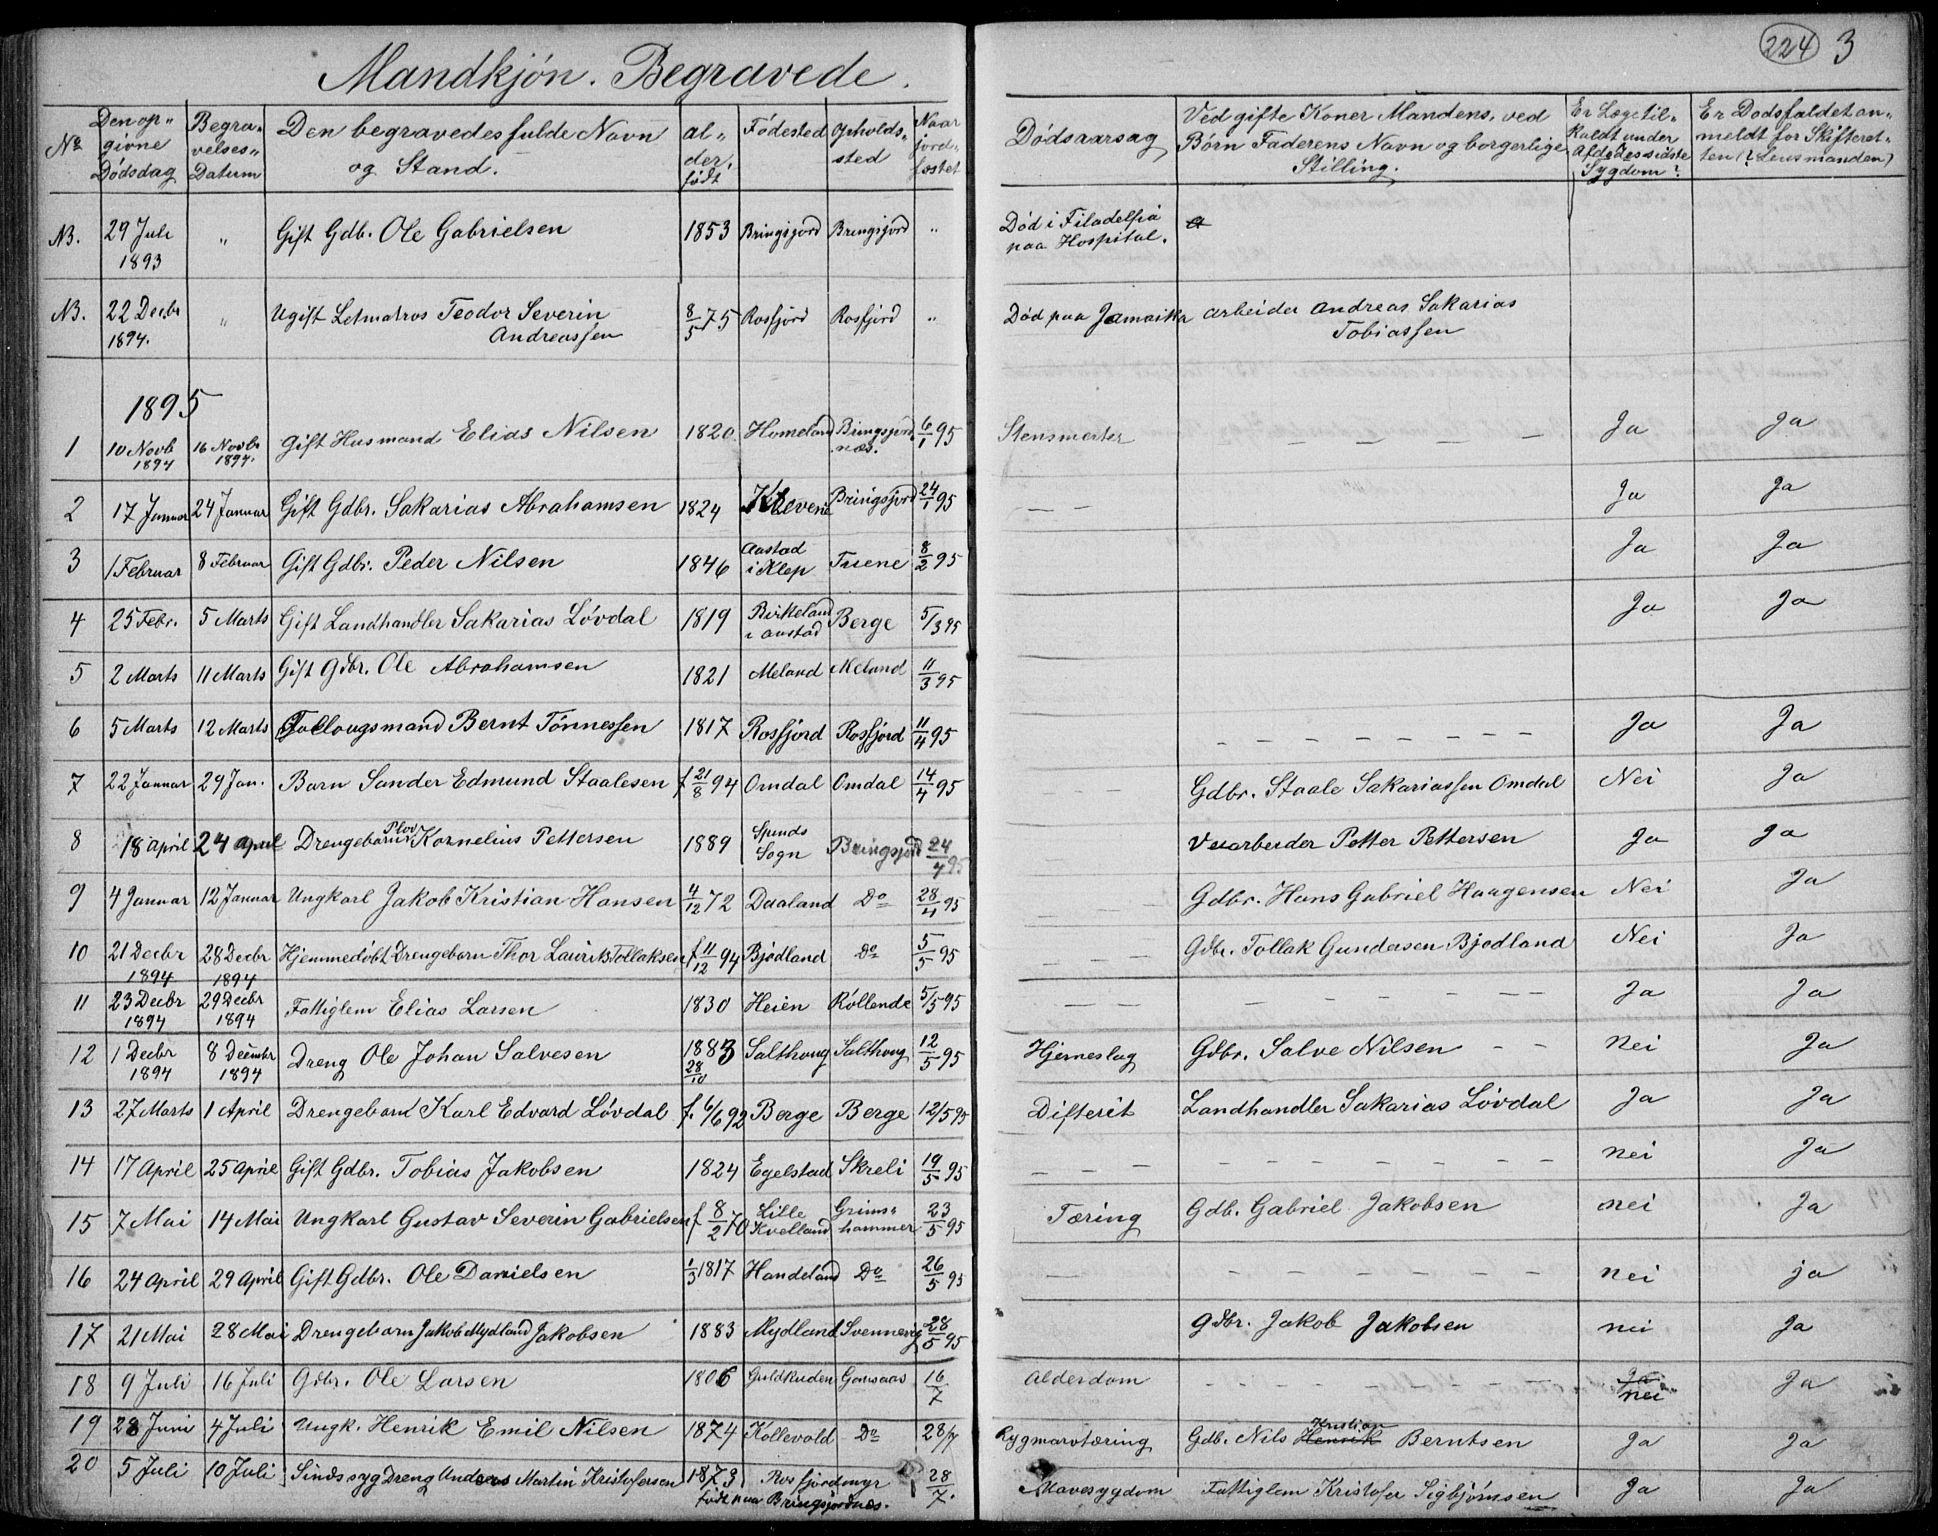 224 3
Mandkjön. Begravede.
No | Den op-givne Dödsdag | Begra-velses-Datum | Den begravedes fulde Navn og Stand. | al-der, født | Födested | Opholds-sted | Naar jord-fæstet | Dödsaarsag | Ved gifte Koner Mandens, ved Börn Faderens Navn og borgerlige Stilling. | Er Lægetil-kaldt under Afdødes sidste Sygdom? | Er Dødsfaldet an-meldt for Skifteret-ten (? Lensmanden)
NB. | 29 Juli 1893 | " | Gift Gdb. Ole Gabrielsen | 1853 | Bringsjord | Bringsjord | " | Död i Filadelfia paa Hospital.
NB. | 22 Decbr 1894. | " | Ugift Letmatros Teodor Severin Andreassen | 8/5 75 | Rosfjord | Rosfjord | " | Död paa Jamaika | Arbeider Andreas Sakarias Tobiassen
1895
1 | 10 Novb 1894 | 16 Novbr 1894. | Gift Husmand Elias Nilsen | 1820 | Homeland | Bringsjord næs. | 6/1 95 | Stensmerter | — — — — — | Ja | Ja
2 | 17 Januar | 24 Januar | Gift Gdbr. Sakarias Abrahamsen | 1824 | Klevene | Bringsjord | 24/1 95 | — — | Ja | Ja
3 | 1 Februar | 8 Februar | Gift Gdbr. Peder Nilsen | 1846 | Austad i Klep | | 8/2 95 | Ja | Ja
4 | 25 Febr. | 5 Marts | Gift Landhandler Sakarias Lövdal | 1819 | Birkeland i Austad | Berge | 5/3 95 | Ja | Ja
5 | 2 Marts | 11 Marts | Gift Gdbr. Ole Abrahamsen | 1821 | Meland | Meland | 11/3 95
6 | 5 Marts | 12 Marts | Bernt Tönnessen | 1817 | Rosfjord | Rosfjord | 11/4 95 | — — — — — — — — | Ja | Ja
7 | 22 Januar | 29 Jan. | Barn Sander Edmund Staalesen | f 21/8 94 | Omdal | Omdal | 14/4 95 | — — — | Gdbr. Staale Sakariassen Omdal | Nei | Ja
8 | 18 April | 24 April | Drengebarn Plov Kornelius Pettersen | 1889 | Spinds Sogn | Bringsjord | 24/4 95 | Veiarbeider Petter Pettersen | Ja | Ja
9 | 4 Januar | 12 Januar | Ungkarl Jakob Kristian Hansen | 4/12 72 | Daaland | Do | 28/4 95 | — — — | Gdbr. Hans Gabriel Haagensen | Nei | Ja
10 | 21 Decbr 1894 | 28 Decbr 1894 | Hjemmedöbt Drengebarn Thor Laurits Tollaksen | f 11/12 94 | Bjödland | Do | 5/5 95 | — — — | Gdbr. Tollak Gundersen Bjödland | Nei | Ja
11 | 23 Decbr 1894 | 29 Decbr 1894 | Fattiglem Elias Larsen | 1830 | Heien | Röllende | 5/5 95 | — — — — — — — — — | Ja | Ja
12 | 1 Decbr 1894 | 8 Decembr 1894 | Dreng Ole Johan Salvesen | 1883 28/10 | Salthoug | Salthoug | 12/5 95 | Hjerneslag | Gdbr. Salve Nilsen — — | Nei | Ja
13 | 27 Marts | 1 April | Drengebarn Karl Edvard Lövdal | f. 6/6 92 | Berge | Berge | 12/5 95 | Difterit | Landhandler Sakarias Lövdal | Ja | Ja
14 | 17 April | 25 April | Gift Gdbr. Tobias Jakobsen | 1824 | Egelstad | Skreli | 19/5 95 | — — — — — — — — — — | nei | Ja
15 | 7 Mai | 14 Mai | Ungkarl Gustav Severin Gabrielsen | f 8/2 70 | Lille Kvelland | Grims-hammer | 23/5 95 | Tæring | Gdb. Gabriel Jakobsen | nei | Ja
16 | 24 April | 29 April | Gift Gdbr. Ole Danielsen | 1/3 1817 | Handeland | Do | 26/5 95 | — — — — — — — — — | nei | ja
17 | 21 Mai | 28 Mai | Drengebarn Jakob Mydland Jakobsen | 1883 | Mydland | Svennevig | 28/5 95 | Gdbr. Jakob Jakobsen | nei | Ja
18 | 9 Juli | 16 Juli | Gdbr. Ole Larsen | 1806 | | | 16/7 | Alderdom | — — — — — — — | Ja nei | Ja
19 | 28 Juni | 4 Juli | Ungk. Henrik Emil Nilsen | 1874 | Kollevold | Do | 28/7 | Rygmarvtæring | Gdb. Nils Henrik Kristian Berntsen | Ja | Ja
20 | 5 Juli | 10 Juli | Sindssyg Dreng Anders Martin Kristofersen | 1873 | Rosfjordmyr født paa Bringsjordnæs. | 28/7. | Mavesygdom | Fattiglem Kristofer Sigbjörnsen | Ja | Ja